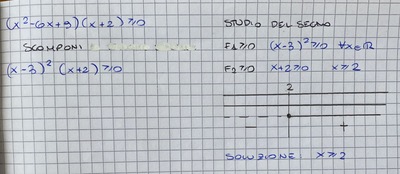 (x²-6x+9)(x+2)≥0
SCOMPONI
(x-3)² (x+2)≥0
STUDIO DEL SEGNO
F1≥0 (x-3)²≥0 ∀x∈ℝ
F2≥0 x+2≥0 x≥2
2
- - - +
SOLUZIONE: x≥2